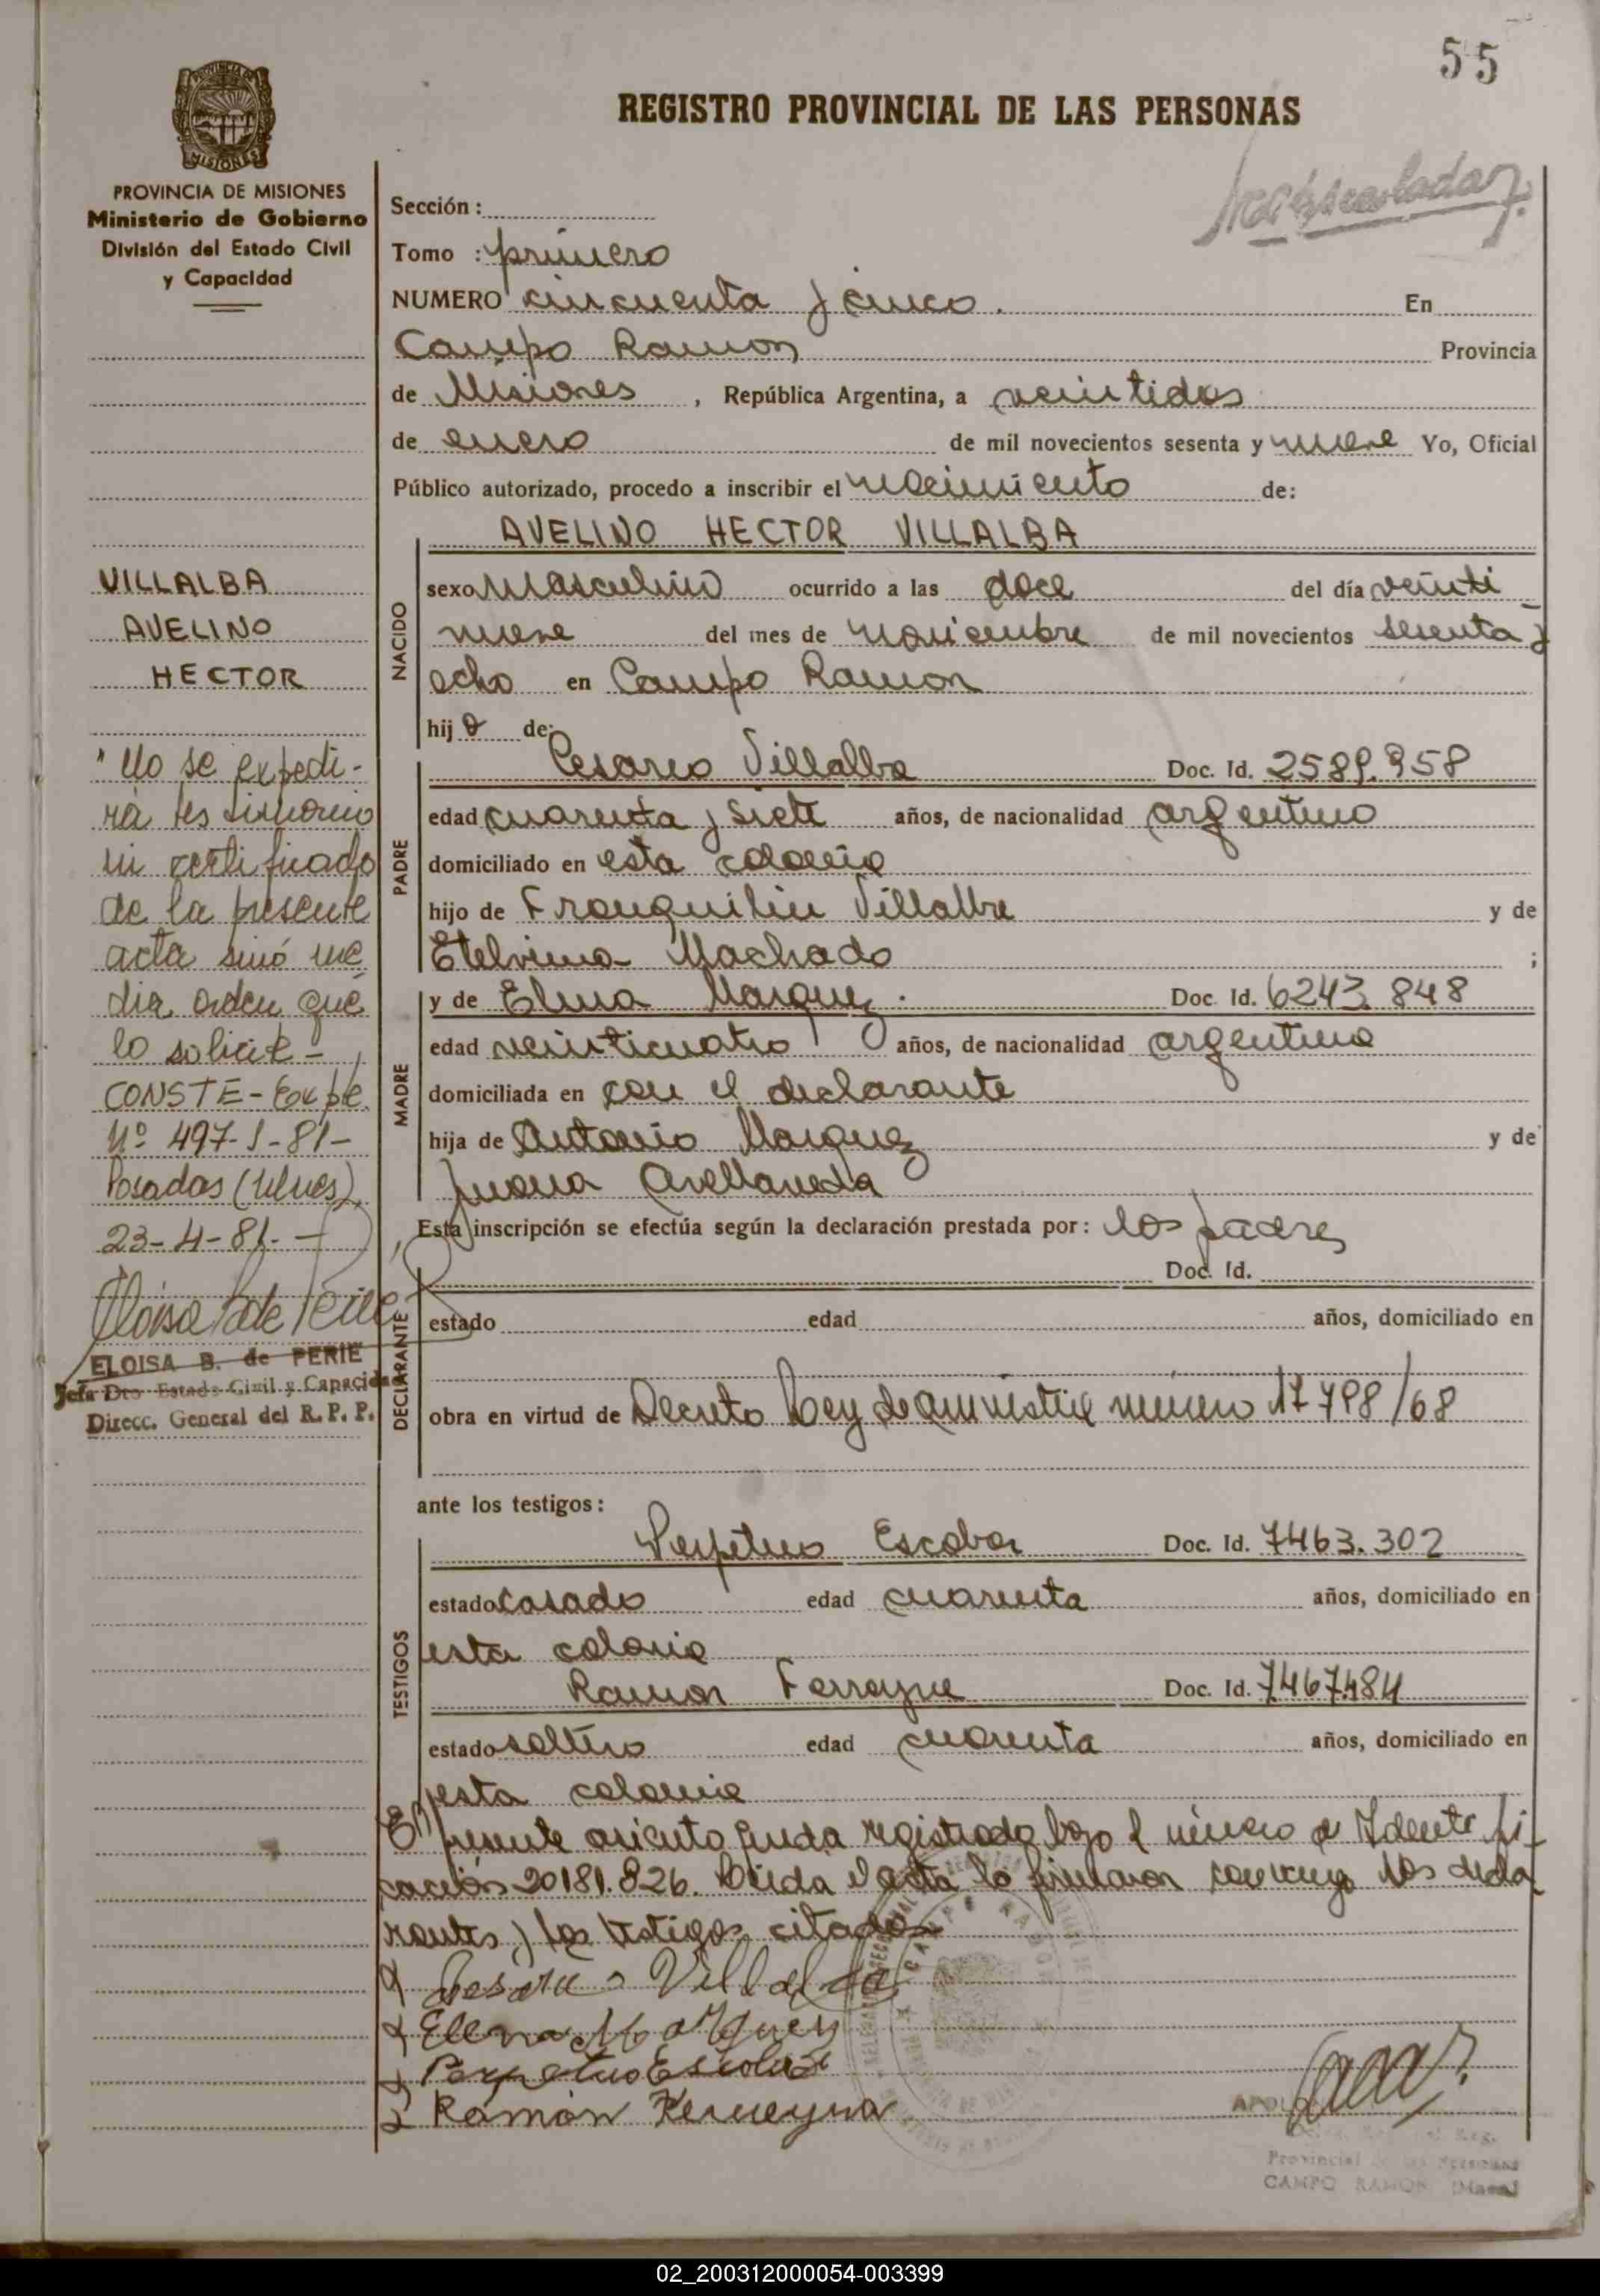 55
REGISTRO PROVINCIAL DE LAS PERSONAS
PROVINCIA DE
MISIONES
PROVINCIA DE MISIONES
Ministerio de Gobierno
División del Estado Civil
y Capacidad
VILLALBA
AVELINO
HECTOR
"No se expedi-
rá testimonio
ni certificado
de la presente
acta sinó me
dia orden que
lo solicite-
CONSTE- Expte
Nº 497-J-81-
Posadas (Mnes),
23-4-81.-
ELOISA B. de PERIE
Jefa Dto Estado Civil y Capacidad
Direcc. General del R. P. P.
Sección :
Tomo : primero
NUMERO cincuenta y cinco. En
Campo Ramon Provincia
de Misiones , República Argentina, a veintidos
de enero de mil novecientos sesenta y nueve Yo, Oficial
Público autorizado, procedo a inscribir el nacimiento de:
NACIDO
AVELINO HECTOR VILLALBA
sexo masculino ocurrido a las doce del día veinti
nueve del mes de noviembre de mil novecientos sesenta y
ocho en Campo Ramon
hijo de:
PADRE
Cesareo Villalba Doc. Id. 2589.958
edad cuarenta y siete años, de nacionalidad argentino
domiciliado en esta colonia
hijo de Franquilin Villalba y de
Etelvina Machado ;
MADRE
y de Elena Marquez. Doc. Id. 6243.848
edad veinticuatro años, de nacionalidad argentina
domiciliada en con el declarante
hija de Antonio Marquez y de
Juana Avellaneda
Esta inscripción se efectúa según la declaración prestada por: los padres
DECLARANTE
Doc. Id.
estado edad años, domiciliado en
obra en virtud de Decreto Ley de amnistia número 17798/68
ante los testigos:
TESTIGOS
Perpetuo Escobar Doc. Id. 7463.302
estado casado edad cuarenta años, domiciliado en
esta colonia
Ramon Ferreyra Doc. Id. 7.467.484
estado soltero edad cuarenta años, domiciliado en
esta colonia
El presente asiento queda registrado bajo el número de Identifi-
cación 20181.826. Leida el acta lo firmaron conmigo los decla
rantes y los testigos citados
Cesareo Villalba
Elena Marquez
Perpetuo Escobar
Ramón Ferreyra
Provincial de las Personas
CAMPO RAMON
02_200312000054-003399